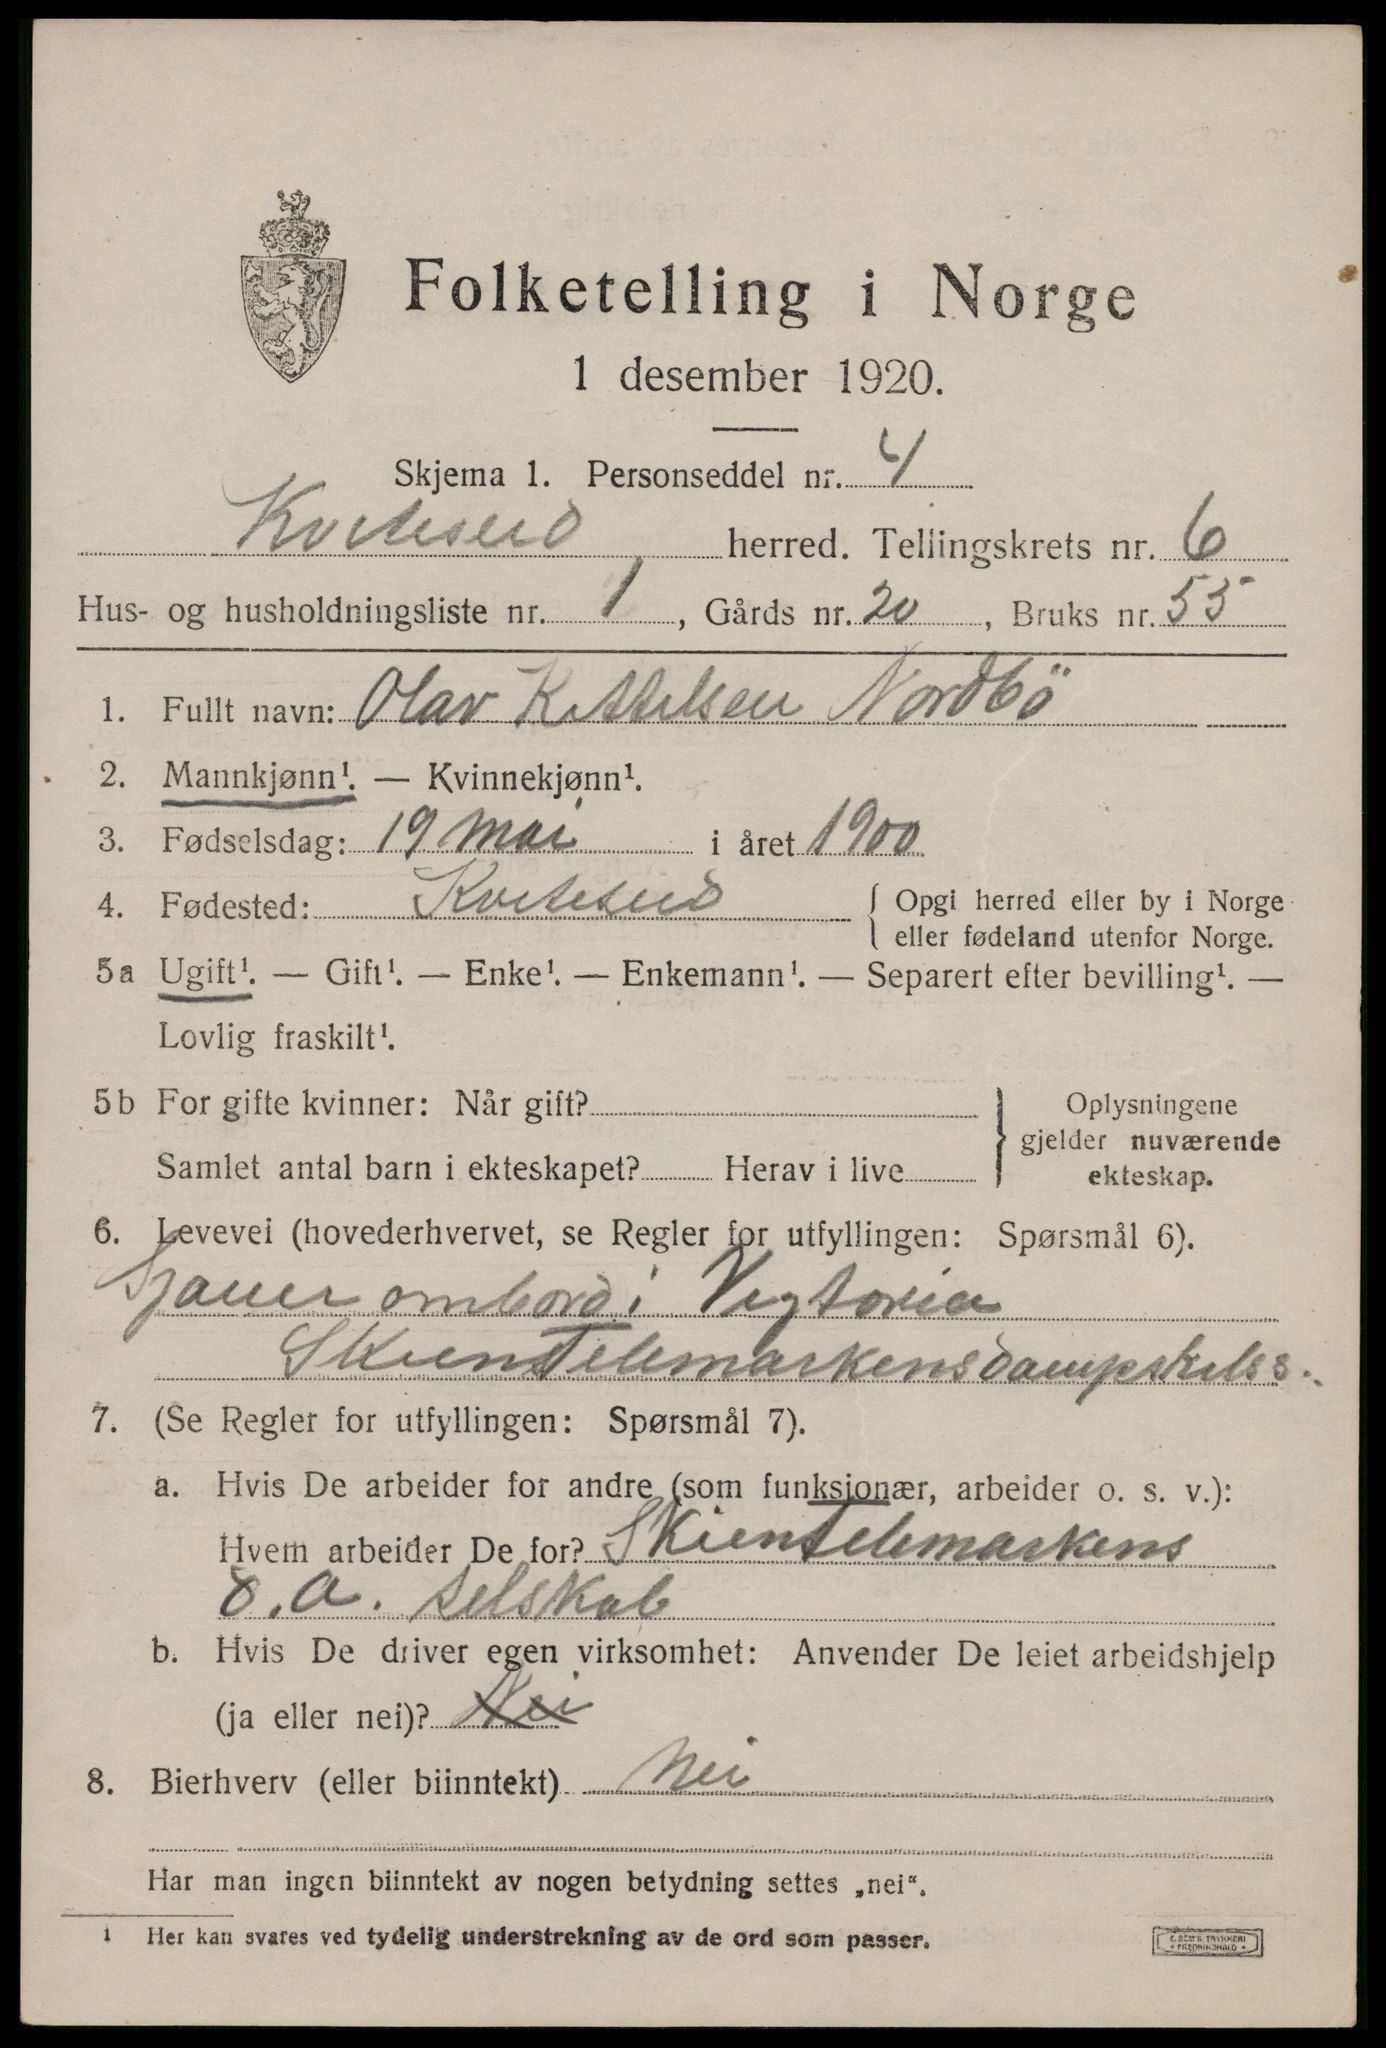 Folketelling i Norge
1 desember 1920.
Skjema 1. Personseddel nr. 4
Kviteseid herred. Tellingskrets nr. 6
Hus- og husholdningsliste nr. 1, Gårds nr. 20, Bruks nr. 55
1. Fullt navn: Olav Kittelsen Nordbö
2. Mannkjønn¹. — Kvinnekjønn¹.
3. Fødselsdag: 19 mai i året 1900
4. Fødested: Kviteseid { Opgi herred eller by i Norge
eller fødeland utenfor Norge.
5a Ugift¹. — Gift¹. — Enke¹. — Enkemann¹. — Separert efter bevilling¹. —
Lovlig fraskilt¹.
5b For gifte kvinner: Når gift? } Oplysningene
gjelder nuværende
Samlet antal barn i ekteskapet? Herav i live
ekteskap.
6. Levevei (hovederhvervet, se Regler for utfyllingen: Spørsmål 6).
Sjauer ombord i Vigtoria
Skiens Telemarkens dampskibss.
7. (Se Regler for utfyllingen: Spørsmål 7).
a. Hvis De arbeider for andre (som funksjonær, arbeider o. s. v.):
Hvem arbeider De for? Skien Telemarkens
D. A. selskab
b. Hvis De driver egen virksomhet: Anvender De leiet arbeidshjelp
(ja eller nei)? Nei
8. Bierhverv (eller biinntekt) Nei
Har man ingen biinntekt av nogen betydning settes „nei“.
1 Her kan svares ved tydelig understrekning av de ord som passer.
E. SEM'S TRYKKERI
* FREDRIKSHALD *